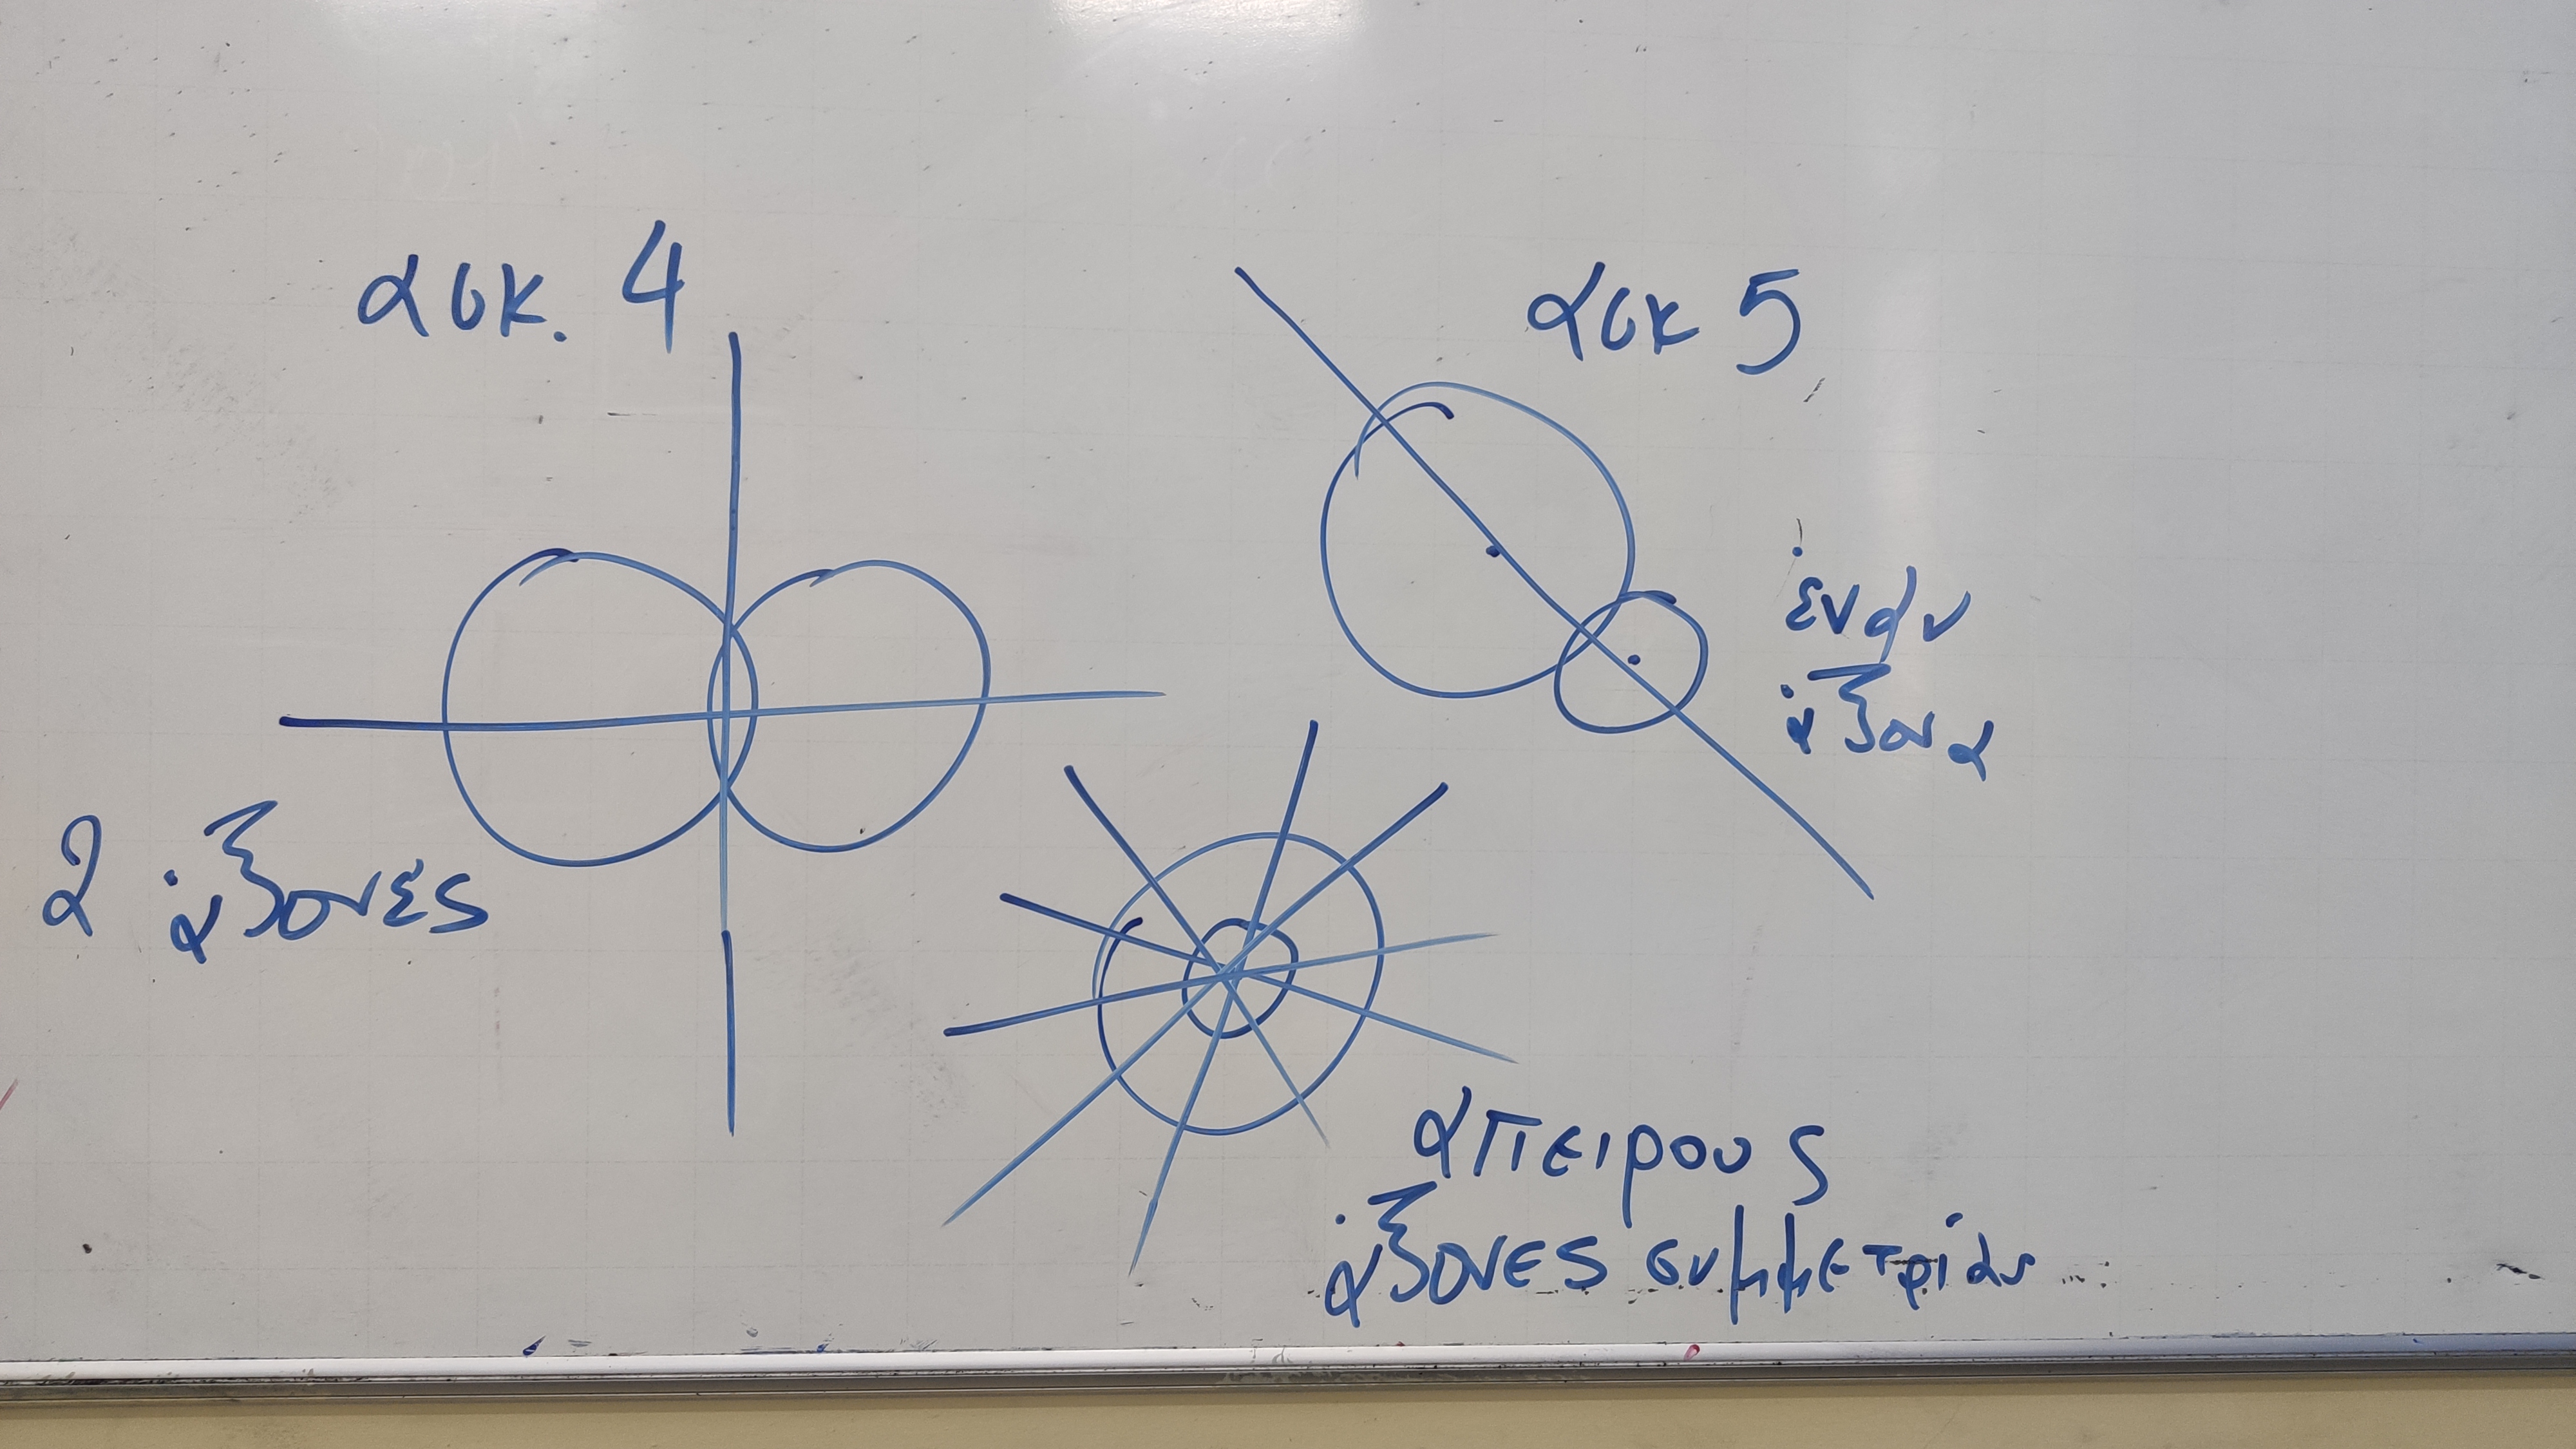 ασκ. 4
2 άξονες
ασκ 5
έναν
άξονα
απειρους
άξονες συμμετρίας